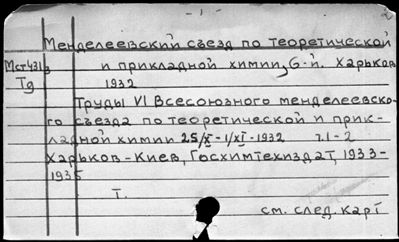 - 1 -
Менделеевский съезд по теоретической
Мст431з и прикладной химии, 6-й. Харьков
Тд 1932
Труды VI Всесоюзного менделеевско-
го съезда по теоретической и прик-
ладной химии 25/X - 1/XI - 1932 т.1-2
Харьков - Киев, Госхимтехиздат, 1933-
1935
Т.
см. след. карт